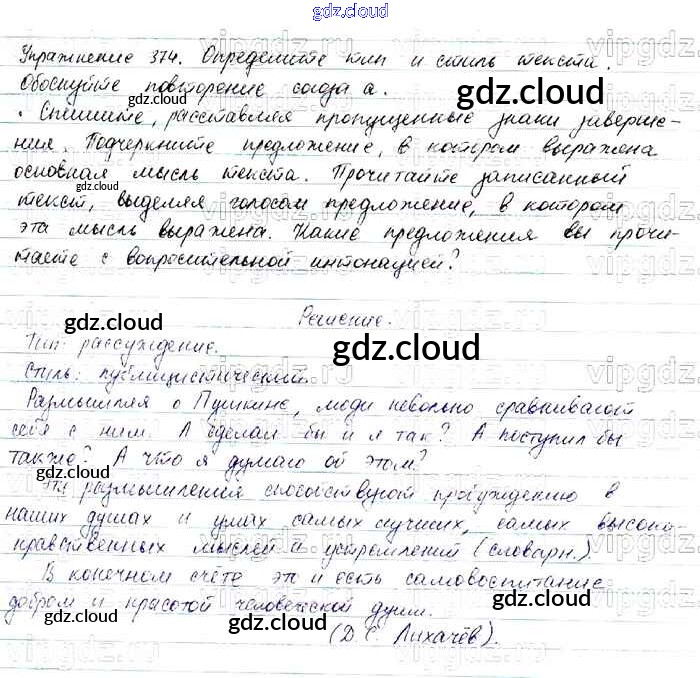 gdz.cloud
Упражнение 374. Определите тип и стиль текста.
Обоснуйте повторение союза а.
gdz.cloud
. Спишите, расставляя пропущенные знаки заверше-
ния. Подчеркните предложение, в котором выражена
основная мысль текста. Прочитайте записанный
gdz.cloud
текст, выделяя голосом предложение, в котором
эта мысль выражена. Какие предложения вы прочи-
таете с вопросительной интонацией?
Решение.
gdz.cloud
gdz.cloud
Тип: рассуждение.
Стиль: публицистический.
Размышляя о Пушкине, люди невольно сравнивают
себя с ним. А сделал бы и я так? А поступил бы
также? А что я думаю об этом?
gdz.cloud
Эти размышления способствуют пробуждению в
наших душах и умах самых лучших, самых высоко-
нравственных мыслей и устремлений (словарн.).
gdz.cloud
В конечном счёте это и есть самовоспитание
добром и красотой человеческой души.
gdz.cloud
(Д. С. Лихачёв).
gdz.cloud